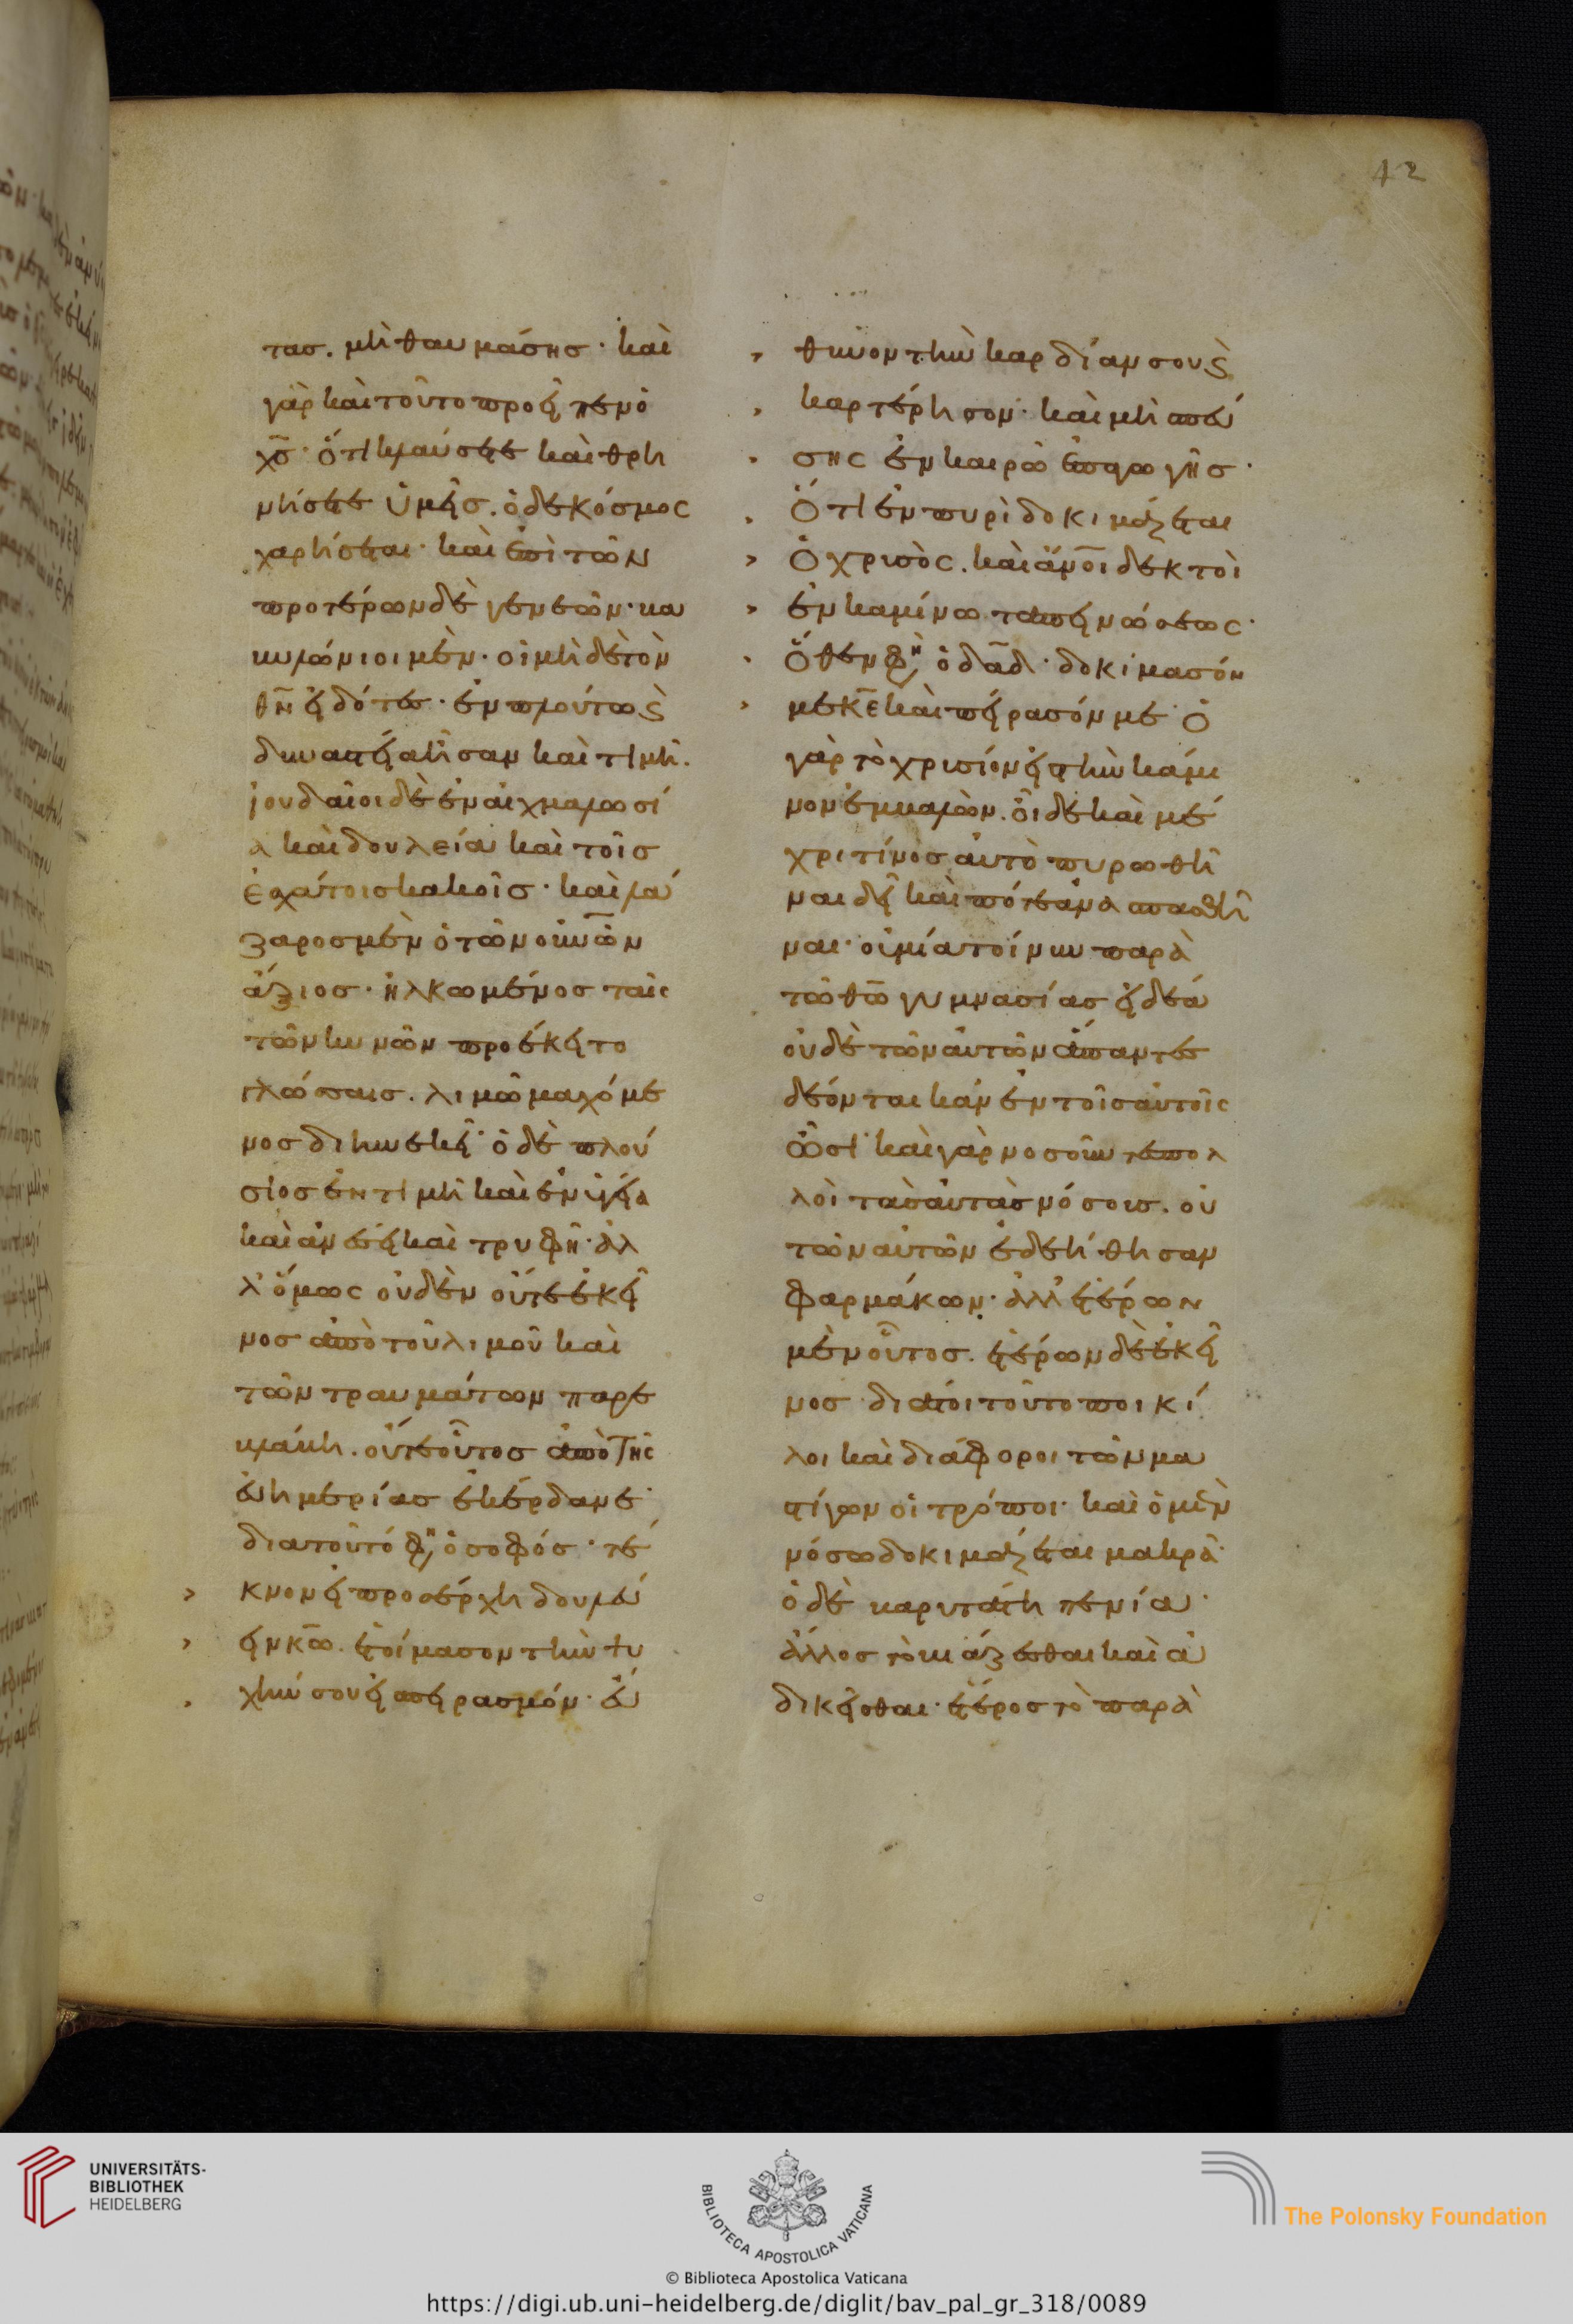 42
τασ. μὴ θαυμάσησ· καὶ
γὰρ καὶ τοῦτο προεῖπεν ὁ
χ̅σ̅· ὅτι κλαύσετε καὶ θρη
νήσετε ὑμεῖσ. ὁ δὲ κόσμοσ
χαρήσεται· καὶ ἐπὶ τῶν
προτέρων δὲ γενεῶν· βα
βυλώνιοι μὲν· οἱ μὴδὲ τὸν
θ̅ν̅ εἰδότεσ· ἐν πλούτω ϗ
δυναστεία ἦσαν καὶ τιμῆ.
ϊουδαῖοι δὲ ἐν αἰχμαλωσί
α καὶ δουλεία καὶ τοῖσ
ἐσχάτοισ κακοῖσ· καὶ λά
ζαροσ μὲν ὁ τῶν οὐ̅ν̅ῶν
ἄξιοσ· ἡλκωμένοσ ταῖσ
τῶν κυνῶν προέκειτο
γλώσσαισ. λιμῶ μαχόμε
νοσ διηνεκεῖ· ὁ δὲ πλού
σιοσ ἐν τιμῆ καὶ ἐν ὑγεία
καὶ ἀνέσει καὶ τρυφῆ· ἀλ
λ' ὅμωσ οὐδὲν οὔτε ἐκεῖ
νοσ ἀπὸ τοῦ λιμοῦ καὶ
τῶν τραυμάτων παρε
βλάβη. οὔτε οὗτοσ ἀπὸ τῆσ
εὐημερίασ ἐκέρδανε·
διατοῦτό φη ὁ σοφόσ· τέ
κνον εἰ προσέρχη δουλεύ
ειν κ̅ω̅. ἑτοίμασον τὴν ψυ
χήν σου εἰσ πειρασμόν· εὔ
θυνον τὴν καρδίαν σου ϗ
καρτέρησον· καὶ μὴ σπεύ
σησ ἐν καιρῶ ἐπαγωγῆσ·
Ὅτι ἐν πυρὶ δοκιμάζεται
Ὁ χρυσὸσ. καὶ ἄ̅ν̅οι δεκτοὶ
ἐν καμίνω ταπεινώσεωσ·
Ὅθεν φη ὁ δ̅α̅δ̅· δοκίμασόν
με κ̅ε̅ καὶ πείρασόν με· Ὁ
γὰρ τὸ χρυσίον εἰσ τὴν κάμι
νον ἐμβαλὼν. οἶδε καὶ μέ
χρι τίνοσ αὐτὸ πυρωθῆ
ναι δεῖ καὶ πότε ἀνασπασθῆ
ναι· οὐ μίασ τοίνυν παρὰ
τῶ θ̅ω̅ γυμνασίασ εἰδέα
οὐδὲ τῶν αὐτῶν ἅπαντεσ
δέονται κἂν ἐν τοῖσ αὐτοῖσ
ὦσι· καὶ γὰρ νοσοῦντεσ πολ
λοὶ τὰσ αὐτὰσ νόσουσ. οὐ
τῶν αὐτῶν ἐδεήθησαν
φαρμάκων· ἀλλ' ἑτέρων
μὲν οὗτοσ. ἑτέρων δὲ ἐκεῖ
νοσ· διάτοι τοῦτο ποικί
λοι καὶ διάφοροι τῶν μα
στίγων οἱ τρόποι· καὶ ὁ μὲν
νόσω δοκιμάζεται μακρᾶ·
ὁ δὲ βαρυτάτη πενία·
ἄλλοσ τὸ βιάζεσθαι καὶ ἀ
δικεῖσθαι· ἕτεροσ τὸ παρὰ
UNIVERSITÄTS-
BIBLIOTHEK
HEIDELBERG
BIBLIOTECA APOSTOLICA VATICANA
The Polonsky Foundation
© Biblioteca Apostolica Vaticana
https://digi.ub.uni-heidelberg.de/diglit/bav_pal_gr_318/0089